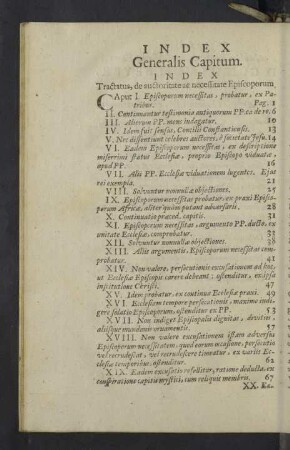 INDEX
Generalis Capitum.
INDEX
Tractatus, de auctoritate ac necessitate Episcoporum
CAput I. Episcoporum necessitas, probatur, ex Patribus. Pag. 1
II. Continuantur testimonia antiquorum PP. ea de re. 6
III. Aliorum PP. mens indagatur. 10
IV. Idem fuit sensus, Concilii Constantiensis. 13
V. Nec dissentiunt celebres auctores, è societate Jesu. 14
VI. Eadem Episcoporum necessitas, ex descriptione
miserrimi status Ecclesiæ, proprio Episcopo viduatæ,
apud PP. 16
VII. Alii PP. Ecclesiæ viduationem lugentes. Ejus
rei exempla. 21
VIII. Solvuntur nonnullæ objectiones. 25
IX. Episcoporum necessitas probatur, ex praxi Episcoporum
Africæ, aliter quam putant adversarii. 28
X. Continuatio præced. capitis. 31
XI. Episcoporum necessitas, argumento PP. ducto, ex
unitate Ecclesiæ, comprobatur. 31
XII. Solvuntur nonnullæ objectiones. 38
XIII. Aliis argumentis, Episcoporum necessitas comprobatur.
41
XIV. Non valere, persecutionis excusationem ad hoc,
ut Ecclesiæ Episcopis carere debeant, ostenditur, ex ipsâ
institutione Christi. 47
XV. Idem probatur, ex continuâ Ecclesiæ praxi. 49
XVI. Ecclesiam tempore persecutionis, maximè indigere
solatio Episcoporum, ostenditur ex PP. 53
XVII. Non indiget Episcopalis dignitas, divitiis,
aliisque mundanis ornamentis. 57
XVIII. Non valere excusationem istam adversus
Episcoporum necessitatem, quod eorum occasione, persecutio
vel recrudescat, vel recrudescere timeatur, ex variis Ecclesiæ
temporibus, ostenditur. 62
XIX. Eadem excusatio refellitur, ratione deductâ, ex
conspiratione capitis mystici, cum reliquis membris. 67
XX. Ex-